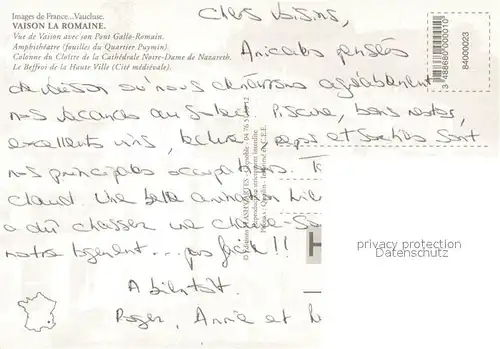 Images de France...Vaucluse.
VAISON LA ROMAINE.
Vue de Vaison avec son Pont Gallo-Romain.
Amphithéâtre (fouilles du Quartier Puymin).
Colonne du Cloître de la Cathédrale Notre-Dame de Nazareth.
Le Beffroi de la Haute Ville (Cité médiévale).
3 488680 000010
84000023
Chers voisins,
Amicales pensées
de Vaison où nous clôturons agréablement
nos vacances au soleil. Piscine, bons restos,
excellents vins, lecture, repos et sorties sont
nos principales occupations.
Claud. Une belle animation hier
a dû chasser une chauve-So
notre logement... pas facile !!
A bientôt.
Roger, Annie et
privacy protection
Datenschutz